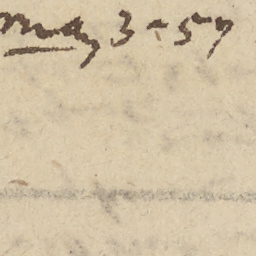 May 3-57